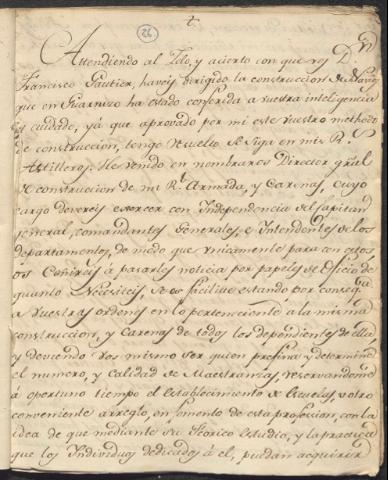 26
Attendiendo al Zelo, y acierto con que vos Dn
Francisco Gautier, haveis dirigido la construccion de Navios
que en Guarnizo ha estado conferida a vuestra inteligencia
y cuidado, ya que aprovado por mi este vuestro methodo
de construccion, tengo resuelto se siga en mis Rs
Astilleros: He venido en nombraros Director gral
de construccion de mi Rl Armada, y Carenas, cuyo
cargo devereis exercer con Independencia del Capitan
general, comandantes Generales, e Intendentes de los
departamentos, de modo que unicamente para con estos
os ceñireis à pasarles noticia por papeles de Oficio de
quanto Neceziteis, se os facilite estando por
a vuestras ordenes en lo perteneciente a la misma
construccion, y Carenas de todos los dependientes de ella,
y deviendo vos mismo ser quien prefina y determine
el numero, y calidad de Maestranza, reservandome
à oportuno tiempo el establecimiento de Escuelas, u otro
conveniente arreglo, en fomento de esta profesion, con la
idea de que mediante su Teorico estudio, y la practica
que los Individuos dedicados à èl, puedan acquirir